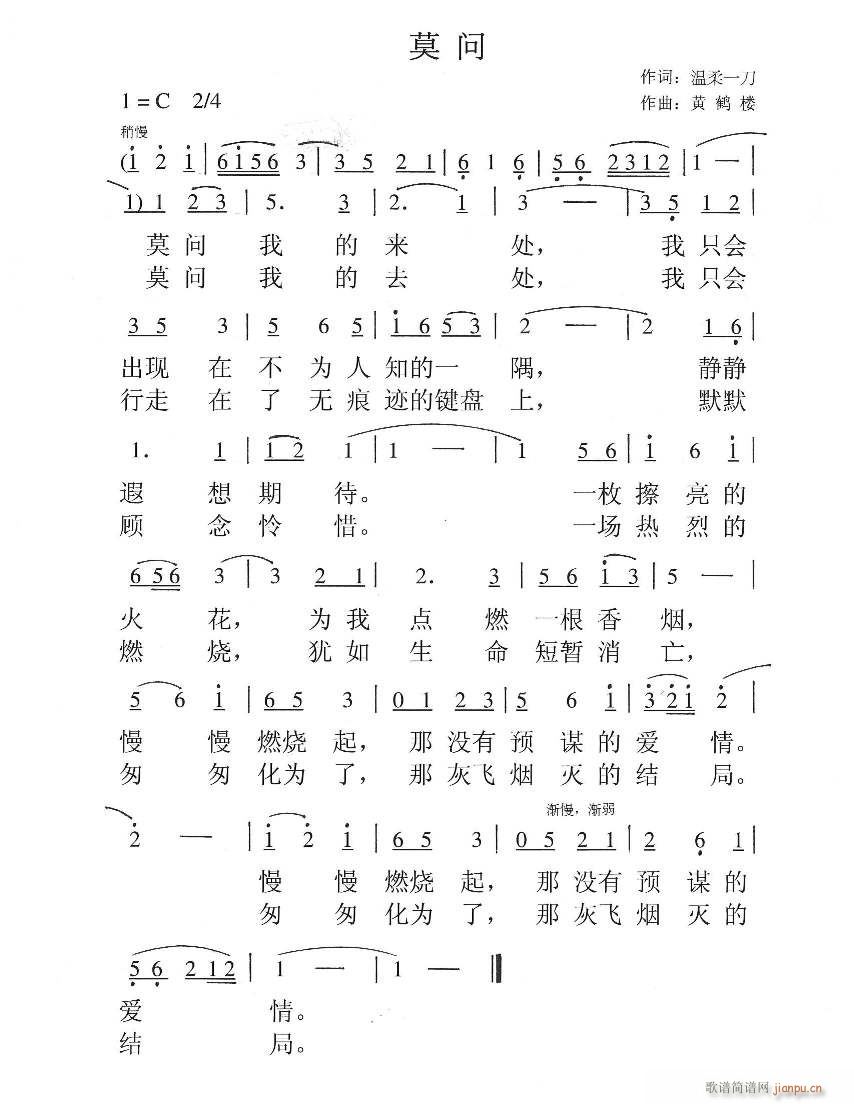 莫 问
作词：温柔一刀
1=C 2/4
作曲：黄 鹤 楼
稍慢
(1 2 1 | 6156 3 | 35 21 | 6 1 6 | 56 2312 | 1 — |
1) 1 23 | 5. 3 | 2. 1 | 3 — | 35 12 |
莫 问 我 的 来 处， 我 只会
莫 问 我 的 去 处， 我 只会
35 3 | 5 65 | 16 53 | 2 — | 2 16 |
出现 在 不 为人 知的一 隅， 静静
行走 在 了 无痕 迹的键盘 上， 默默
1. 1 | 12 1 | 1 — | 1 56 | 1 6 1 |
遐 想 期 待。 一枚 擦 亮 的
顾 念 怜 惜。 一场 热 烈 的
656 3 | 3 21 | 2. 3 | 56 13 | 5 — |
火 花， 为我 点 燃 一根 香 烟，
燃 烧， 犹如 生 命 短暂 消 亡，
5 6 1 | 65 3 | 01 23 | 5 6 1 | 321 2 |
慢 慢 燃烧 起， 那 没有 预 谋 的 爱 情。
匆 匆 化为 了， 那 灰飞 烟 灭 的 结 局。
渐慢，渐弱
2 — | 1 2 1 | 65 3 | 05 21 | 2 6 1 |
慢 慢 燃烧 起， 那 没有 预 谋 的
匆 匆 化为 了， 那 灰飞 烟 灭 的
56 212 | 1 — | 1 — ‖
爱 情。
结 局。
歌谱简谱网 jianpu.cn